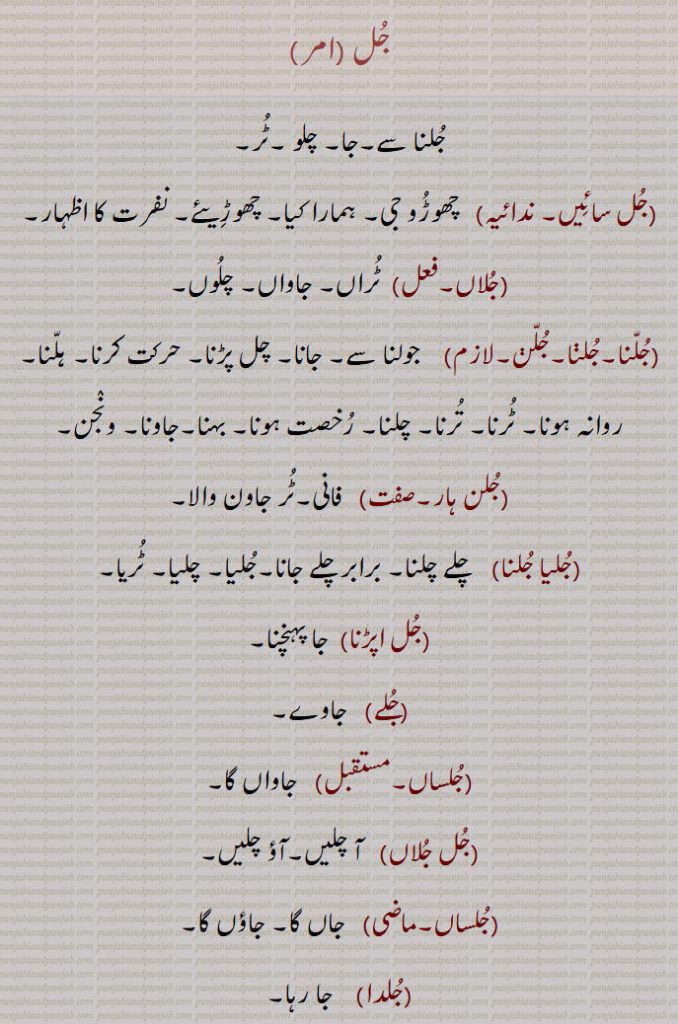 جُل (امر)
جُلنا سے۔ جا۔ چلو ۔ ٹُر۔
(جُل سائِیں۔ ندائیہ) چھوڑُو جی۔ ہمارا کیا۔ چھوڑِیئے۔ نفرت کا اظہار۔
(جُلاں۔ فعل) ٹُراں۔ جاواں۔ چلُوں۔
(جُلّنا۔ جُلݨا۔ جُلّݨ۔ لازم) جولنا سے۔ جانا۔ چل پڑنا۔ حرکت کرنا۔ ہلّنا۔
روانہ ہونا۔ ٹُرنا۔ تُرنا۔ چلنا۔ رُخصت ہونا۔ بہنا۔ جاونا۔ ون٘جن۔
(جُلن ہار۔ صفت) فانی۔ ٹُر جاون والا۔
(جُلیا جُلنا) چلے چلنا۔ برابر چلے جانا۔ جُلیا۔ چلیا۔ ٹُریا۔
(جُل اپڑنا) جا پہنچنا۔
(جُلے) جاوے۔
(جُلساں۔ مستقبل) جاواں گا۔
(جُل جُلاں) آ چلیں۔ آؤ چلیں۔
(جُلساں۔ ماضی) جاں گا۔ جاؤں گا۔
(جُلدا) جا رہا۔